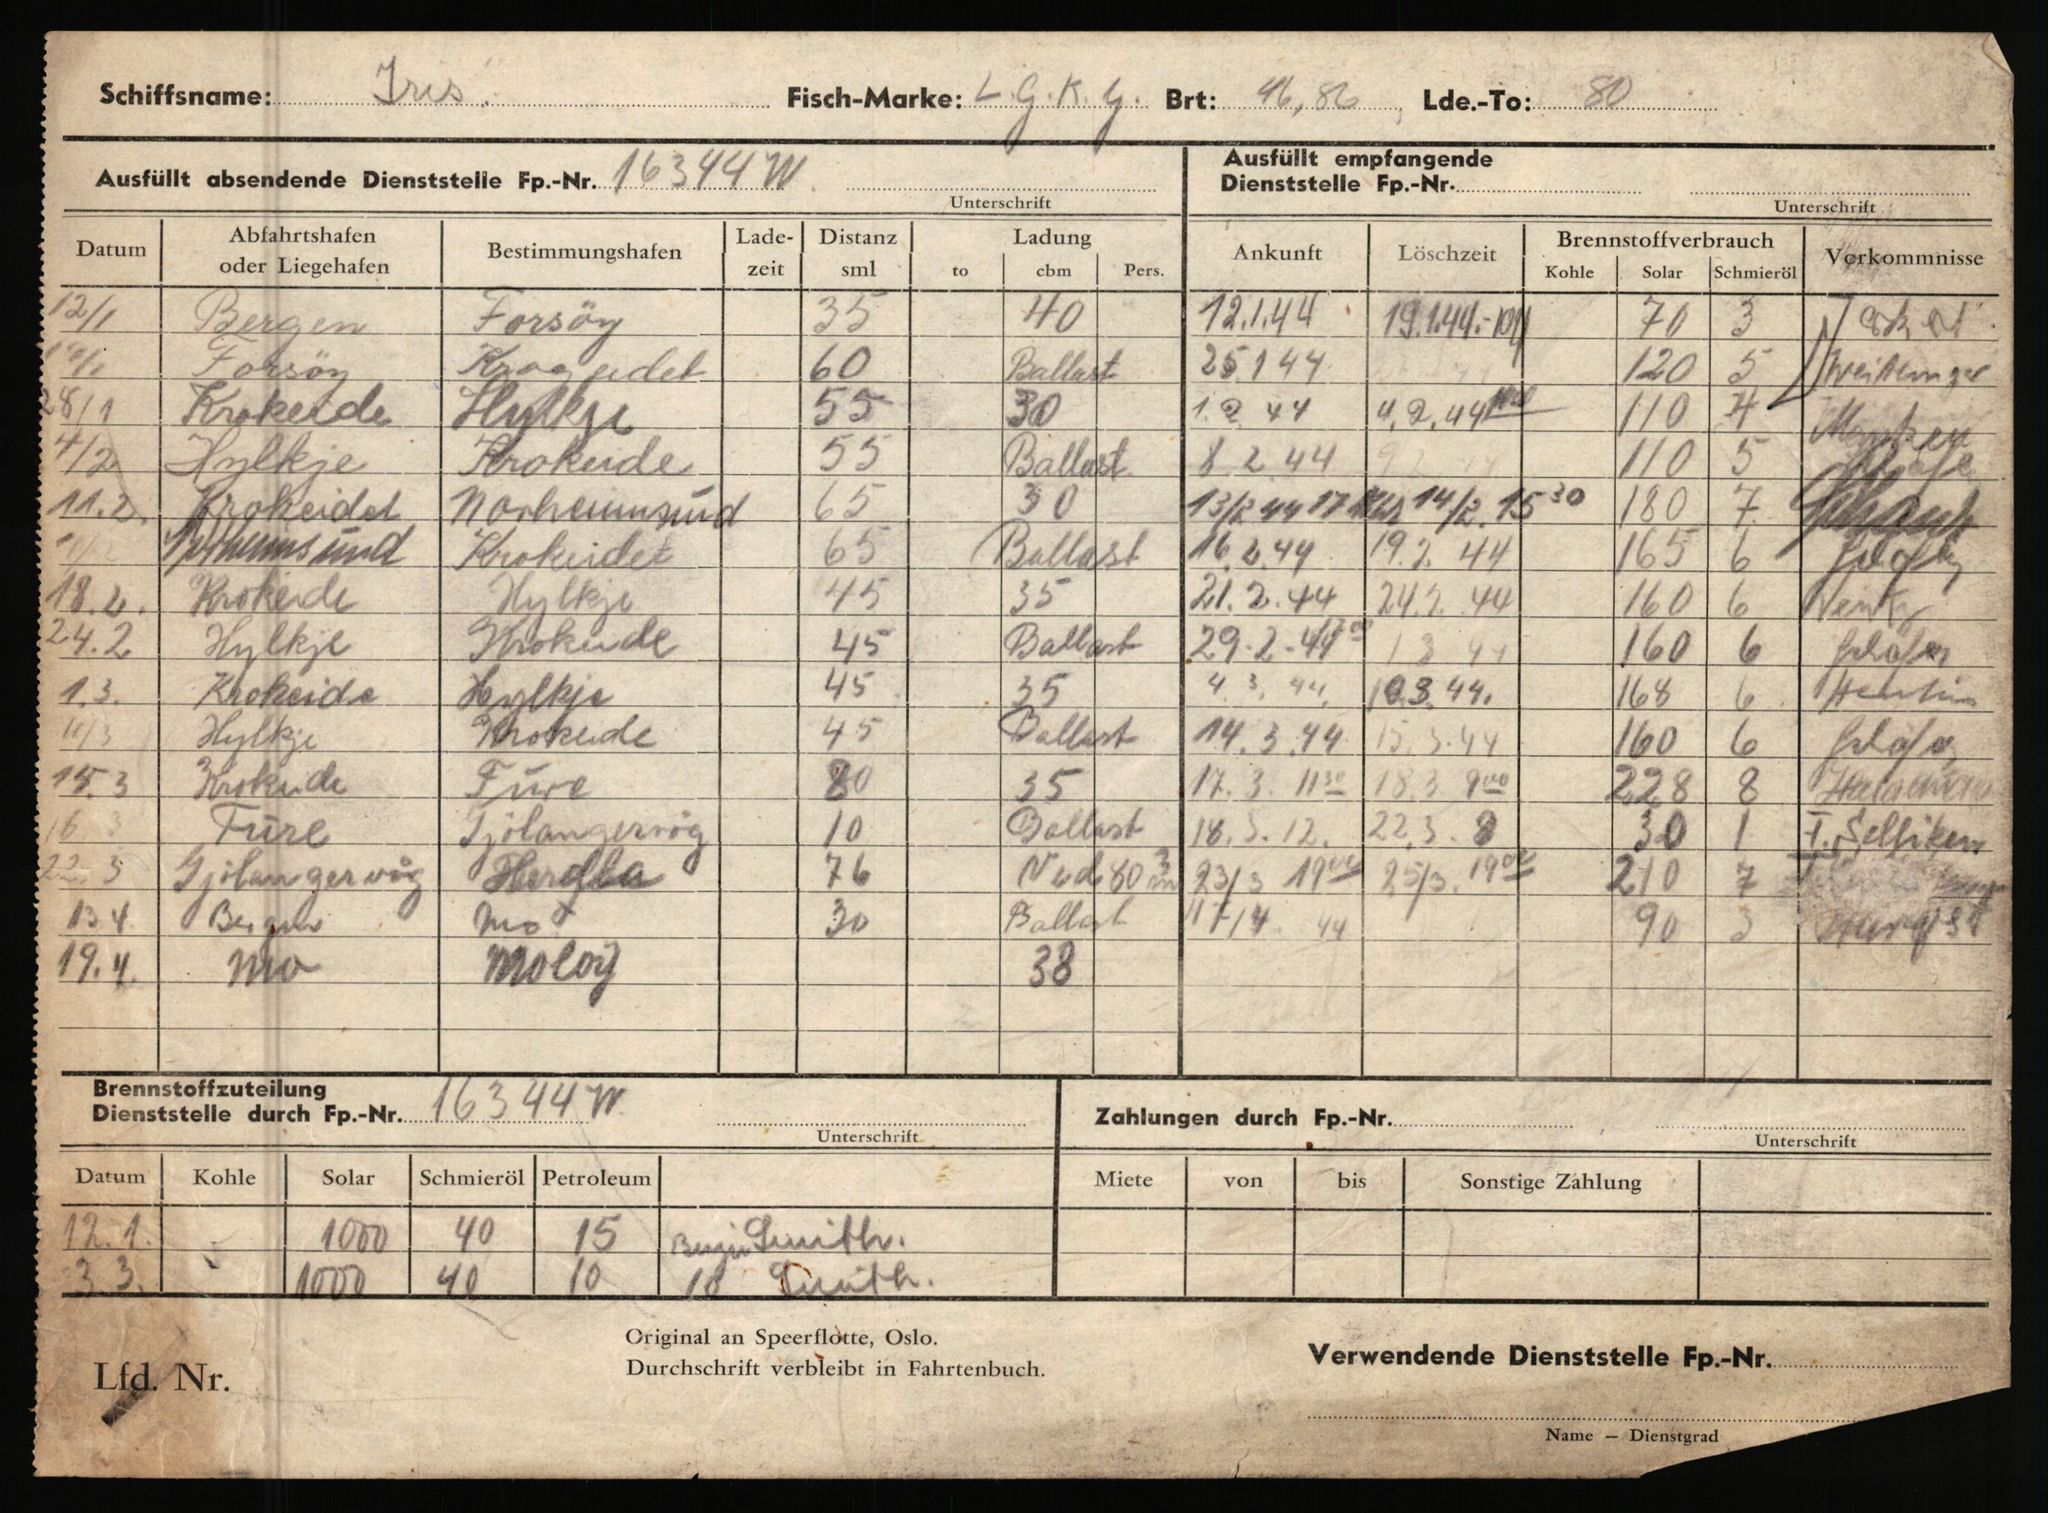 Schiffsname: Iris. Fisch-Marke: L.G.K.G. Brt: 46,86 Lde.-To: 80
Ausfüllt absendende Dienststelle Fp.-Nr. 16344 W Unterschrift
Ausfüllt empfangende
Dienststelle Fp.-Nr. Unterschrift
Datum Abfahrtshafen oder Liegehafen Bestimmungshafen Lade-zeit Distanz sml Ladung to cbm Pers. Ankunft Löschzeit Brennstoffverbrauch Kohle Solar Schmieröl Vorkommnisse
12/1 Bergen Forsöy 35 40 12.1.44 19.1.44. 70 3
Forsöy 60 Ballast 25.1 44 120 5
28/1 Krokeide Hylkje 55 30 1.2.44 4.2.44 110 4
4/2 Hylkje Krokeide 55 Ballast 8.2.44 9.2.44 110 5
11.2. Krokeidet Norheimsund 65 30 13/2 44 14/2. 15 30 180 7
Norheimsund Krokeidet 65 Ballast 16.2.44 19.2.44 165 6
18.2. Krokeide Hylkje 45 35 21.2.44 24.2.44 160 6
24.2 Hylkje Krokeide 45 Ballast 29.2.44 1 3 44 160 6
1.3. Krokeide Hylkje 45 35 4.3.44. 10.3.44. 168 6
11/3 Hylkje Krokeide 45 Ballast 14.3.44 15.3.44 160 6
15.3 Krokeide Fure 80 35 17.3. 11 30 18.3 9 00 228 8
16 3 Fure Gjölangervåg 10 Ballast 18.3.12. 22.3. 8 30 1 T.Selliken
22.3 Gjölangervåg Herdla 76 80 m3 23/3 19 00 25/3. 19 00 210 7
13.4. Bergen Mo 30 Ballast 17/4 44 90 3
19.4. Mo Moloy 38
Brennstoffzuteilung
Dienststelle durch Fp.-Nr. 16344 W Unterschrift
Zahlungen durch Fp.-Nr. Unterschrift
Datum Kohle Solar Schmieröl Petroleum Miete von bis Sonstige Zahlung
12.1. - 1000 40 15 Smith.
3.3. - 1000 40 10 10 Smith.
Original an Speerflotte, Oslo.
Durchschrift verbleibt in Fahrtenbuch.
Lfd. Nr.
Verwendende Dienststelle Fp.-Nr.
Name — Dienstgrad